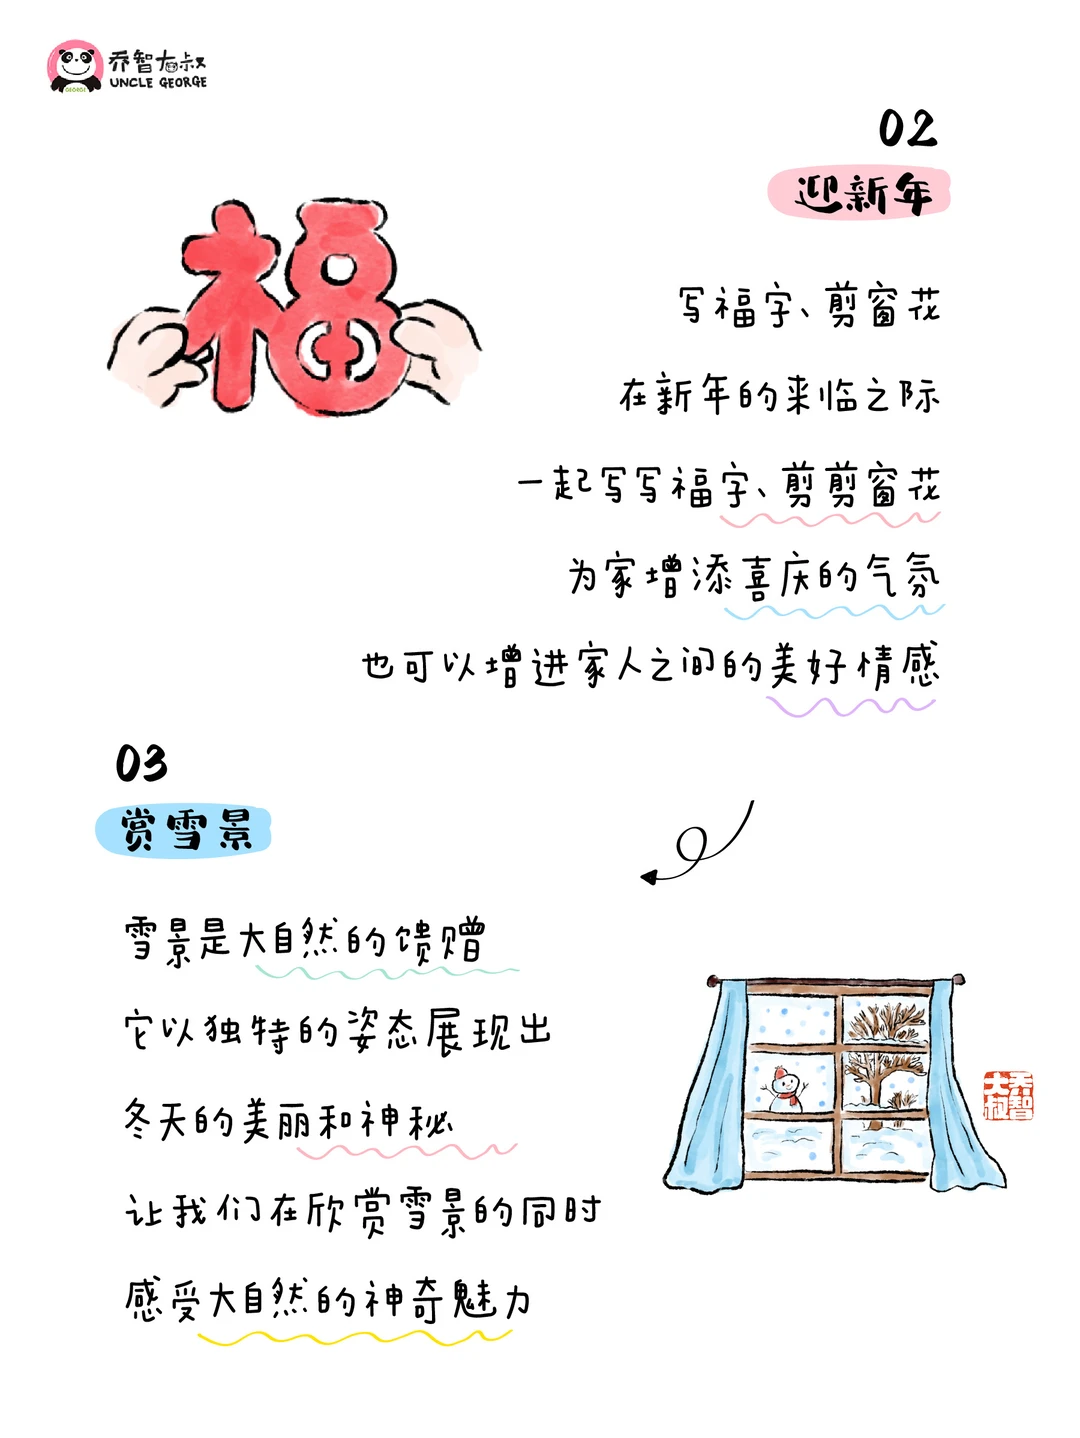 乔智大叔
UNCLE GEORGE
GEORGE
02
迎新年
福
写福字、剪窗花
在新年的来临之际
一起写写福字、剪剪窗花
为家增添喜庆的气氛
也可以增进家人之间的美好情感
03
赏雪景
雪景是大自然的馈赠
它以独特的姿态展现出
冬天的美丽和神秘
让我们在欣赏雪景的同时
感受大自然的神奇魅力
乔智大叔